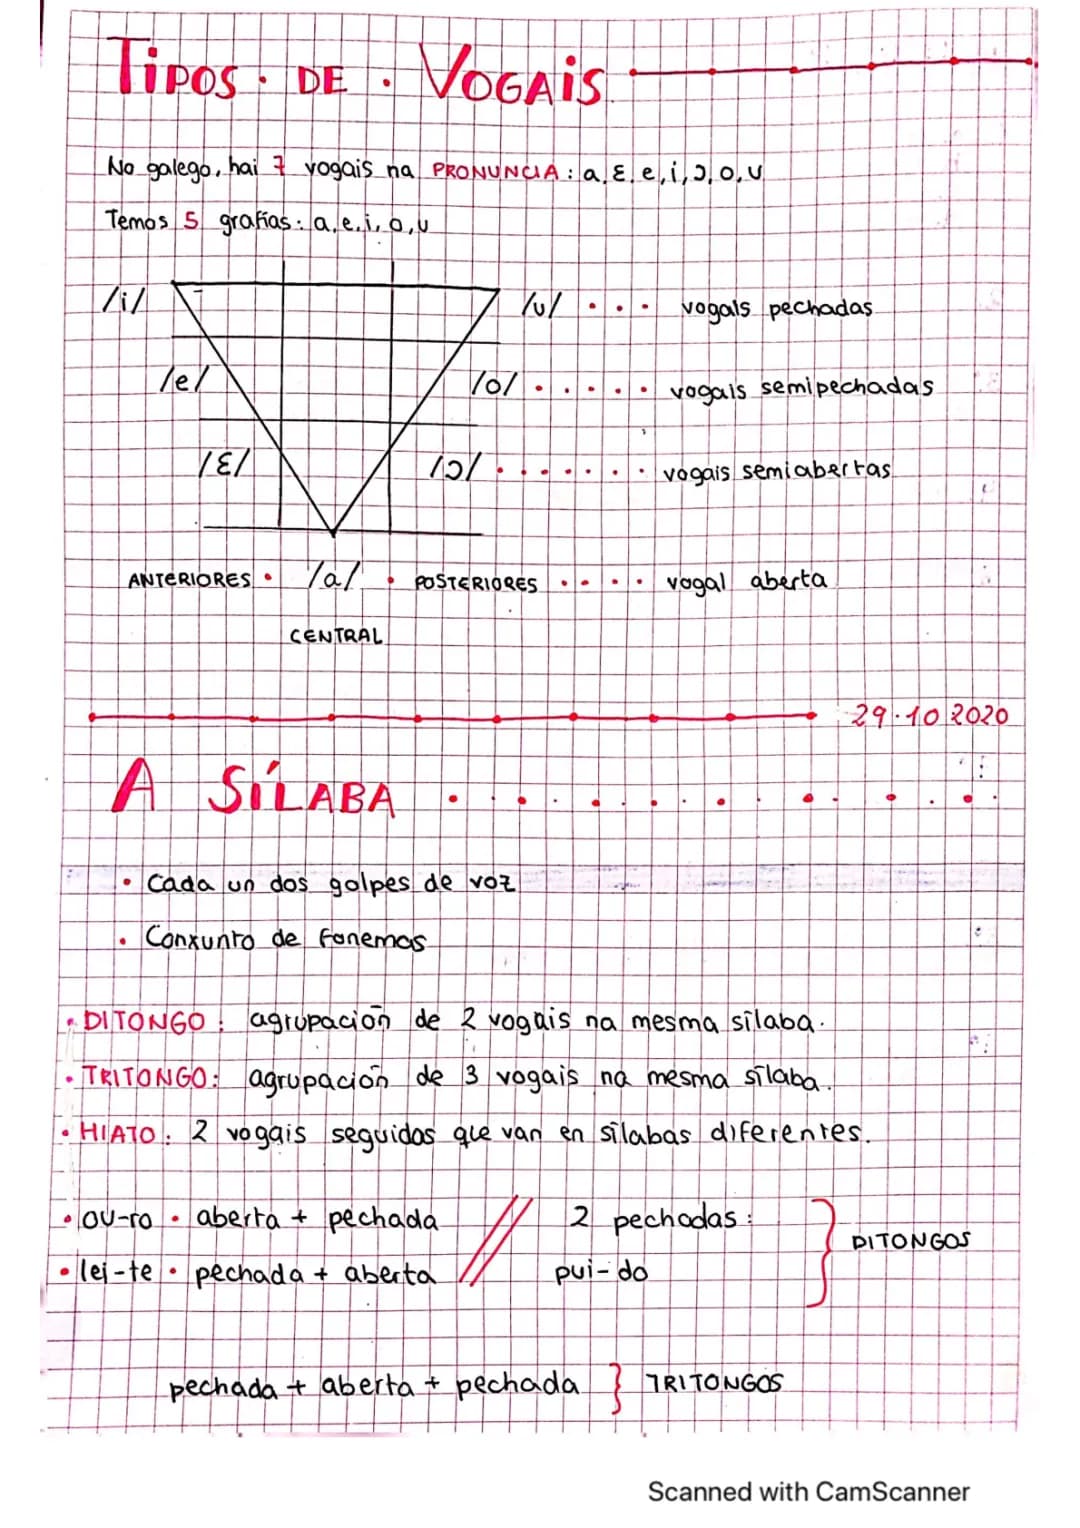 TIPOS · DE · VOGAIS
No galego, hai 7 vogais na PRONUNCIA: a, ɛ, e, i, ɔ, o, u
Temos 5 grafías: a, e, i, o, u
/i/ /u/ · · · vogais pechadas
/e/ /o/ · · · · · vogais semipechadas
/ɛ/ /ɔ/ · · · · · · · vogais semiabertas
ANTERIORES · /a/ · POSTERIORES · · · · vogal aberta
CENTRAL
29·10 2020
A SÍLABA
· Cada un dos golpes de voz
· Conxunto de fonemas
· DITONGO: agrupación de 2 vogais na mesma sílaba.
· TRITONGO: agrupación de 3 vogais na mesma sílaba.
· HIATO: 2 vogais seguidas que van en sílabas diferentes.
· ou-ro · aberta + pechada // 2 pechadas: } DITONGOS
· lei-te · pechada + aberta pui-do
pechada + aberta + pechada } TRITONGOS
Scanned with CamScanner